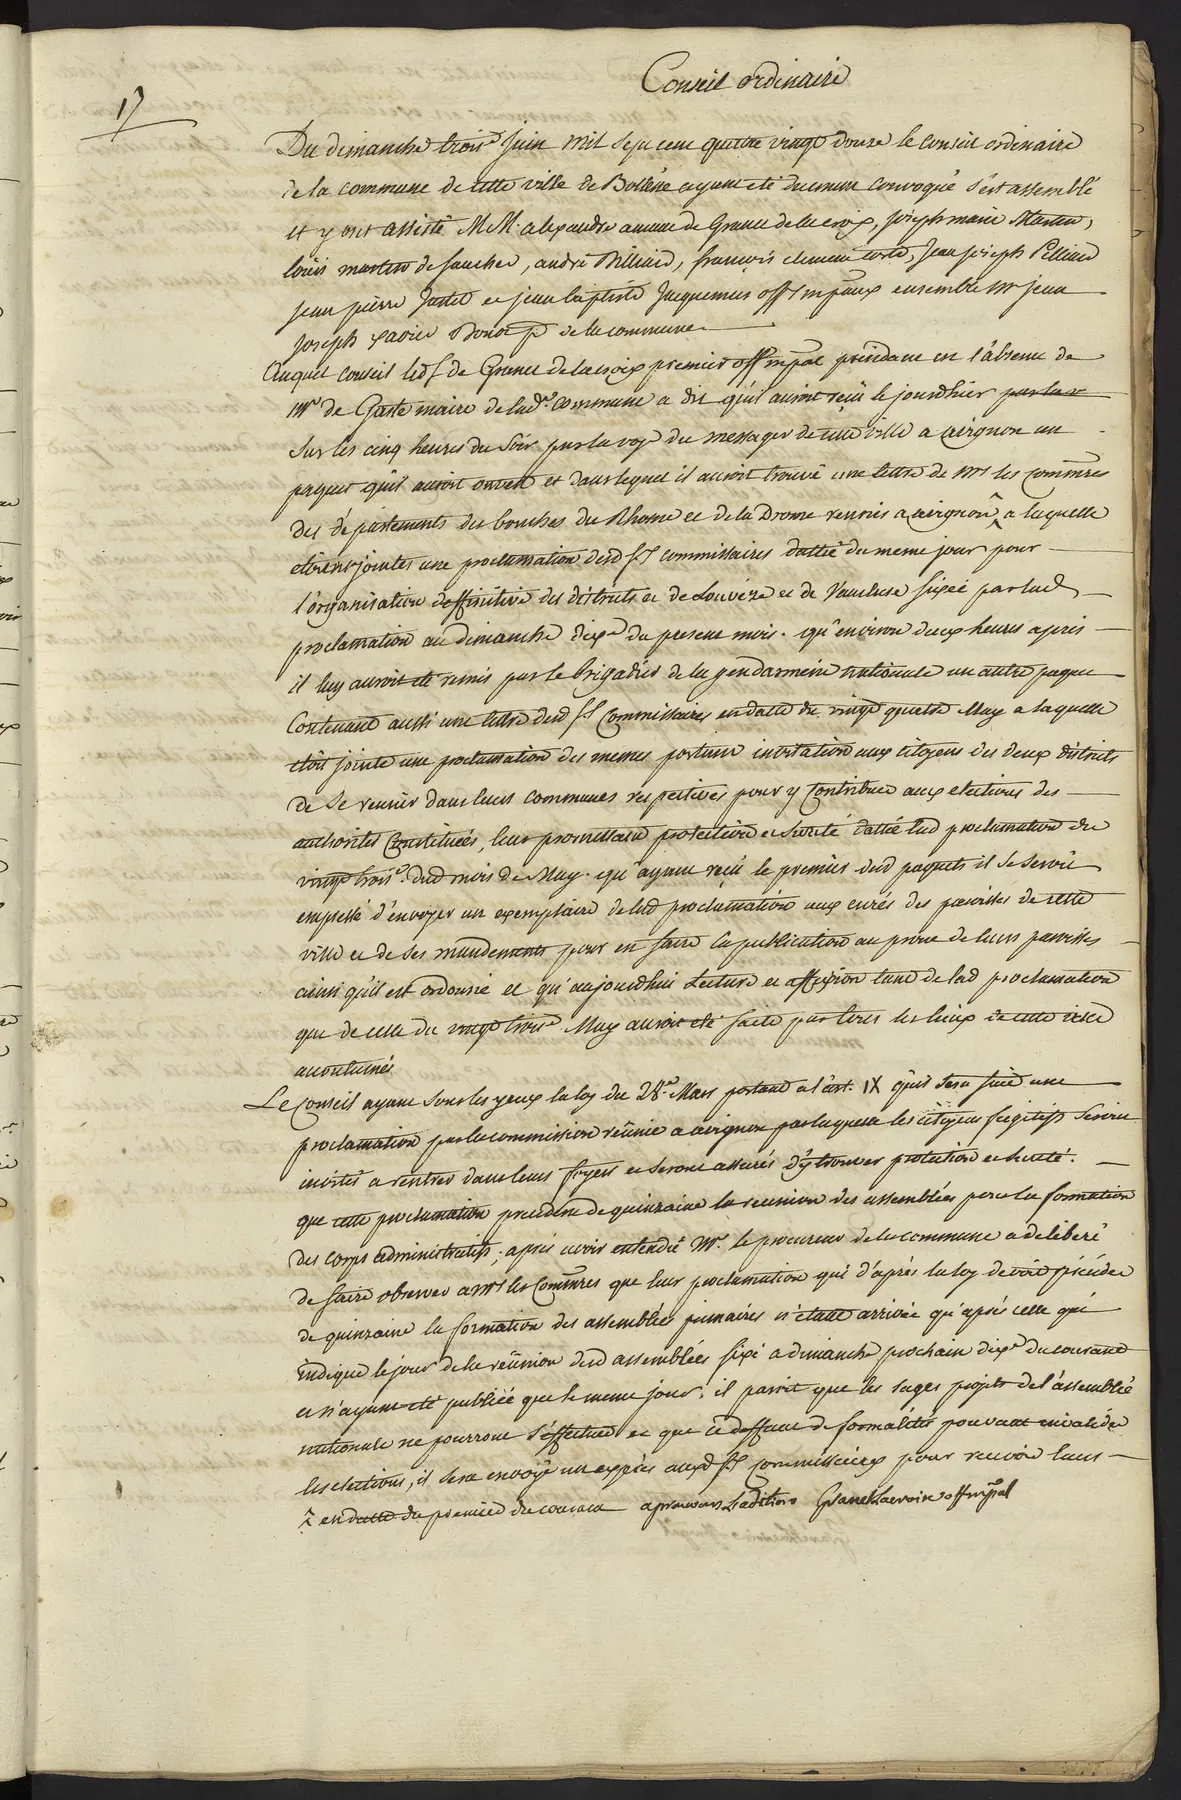 17
Conseil ordinaire
Du dimanche trois.e juin mil sept cent quatre vingt douze le conseil ordinaire
de la commune de cette ville de Bollène ayant eté duement convoqué s'est assemblé
et y ont assisté M.M. alexandre de Granet delacroix, joseph marie Martin,
louis martin de faucher, andré Billiard, françois clement, jean joseph Pelliard
jean pierre et jean baptiste Jacquemus off.s mpaux ensemble mr jean
joseph xavier p.r de la commune
Auquel conseil led s.r de Granet delacroix premier off mpal president en l'absence de
mr. de Gaste maire de lad.e commune a dit qu'il auroit reçû le jourdhier par la v
sur les cinq heures du soir par la voye du messager de cette ville a avignon un
paquet qu'il auroit ouvert et dans lequel il auroit trouvé une lettre de mrs les commres
des départements des bouches du Rhone et de la Drome reunis a avignon ^ a laquelle
etoient jointes une proclamation desd srs commissaires dattée du meme jour pour
l'organisation deffinitive des districts et de Louvéze et de Vaucluse fixée par lad
proclamation au dimanche dix.e du present mois. qu'environ deux heures après
il luy auroit eté remis par le brigadier de la gendarmerie nationale un autre paquet
Contenant aussi une lettre desd srs Commissaires en datte du vingt quatre May a laquelle
etoit jointe une proclamation des memes portant invitation aux citoyens des deux districts
de se reunir dans leurs communes respectives pour y Contribuer aux elections des
authorités Constituées, leur promettant protection et sureté dattée lad proclamation du
vingt trois.e dud mois de May. qu'ayant reçû le premier desd paquets il se seroit
empressé d'envoyer un exemplaire de lad proclamation aux curés des paroisses de cette
ville et de ses mandements pour en faire la publication au prone de leurs paroisses
ainsi qu'il est ordonné et qu'aujourdhui lecture et affixion tant de lad proclamation
que de celle du vingt trois.e May auroit eté faite par tous les lieux de cette ville
accoutumés
Le Conseil ayant sous les yeux la loy du 28.e Mars portant a l'art. IX qu'il sera faite une
proclamation par la commission réunie a avignon par laquelle les citoyens fugitifs seroient
invités a rentrer dans leurs foyers et seront assurés d'y trouver protection et sureté.
que cette proclamation precedera de quinzaine la reunion des assemblées pour la formation
des corps administratifs; après avoir entendû Mr. le procureur de la commune a deliberé
de faire observer a mrs les Commres que leur proclamation qui d'après la loy devoit précéder
de quinzaine la formation des assemblées primaires n'étant arrivée qu'après celle qui
indique le jour de la réunion desd assemblées fixé a dimanche prochain dix.e du courant
et n'ayant eté publiée que le meme jour, il paroit que les sages projets de l'assemblée
nationale ne pourront s'effectuer et que ce deffaut de formalités pouvant invalider
les elections, il sera envoyé un exprès auxd srs commissaires pour recevoir leurs
^ en datte du premier du courant aprouvons l'adition Granet Lacroix off mpal